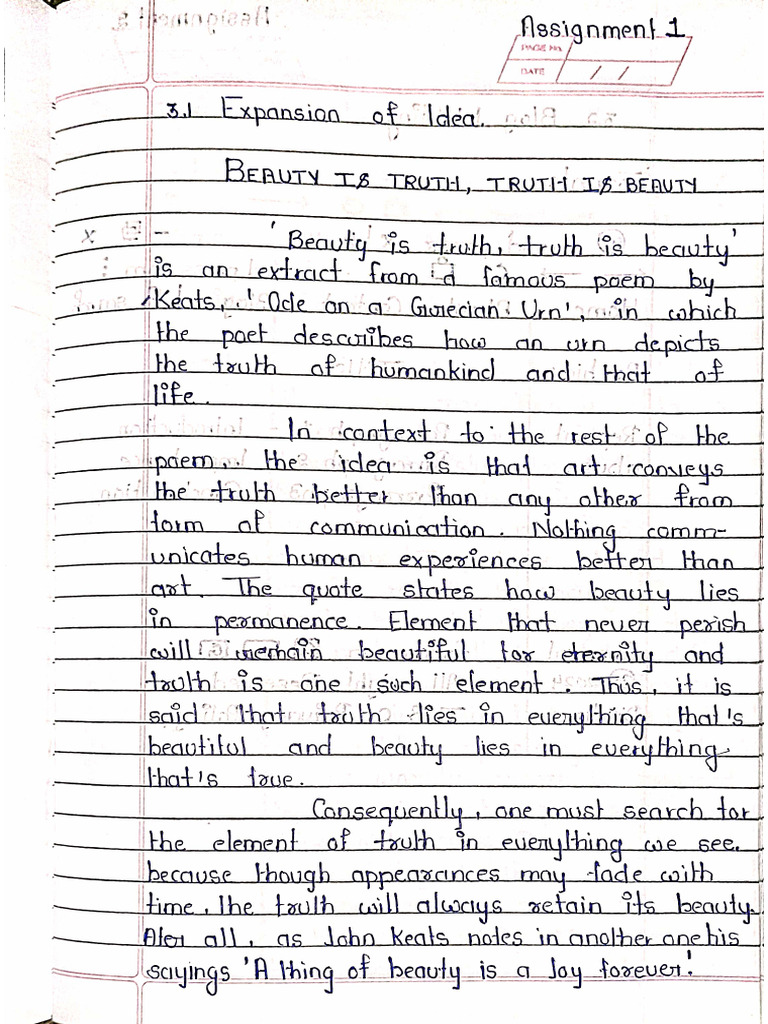 Assignment 1
PAGE No.
DATE / /
3.1 Expansion of Idea.
BEAUTY IS TRUTH, TRUTH IS BEAUTY
'Beauty is truth, truth is beauty'
is an extract from a famous poem by
Keats, 'Ode on a Grecian Urn', in which
the poet describes how an urn depicts
the truth of humankind and that of
life.
In context to the rest of the
poem, the idea is that art conveys
the truth better than any other from
form of communication. Nothing comm-
unicates human experiences better than
art. The quote states how beauty lies
in permanence. Element that never perish
will remain beautiful for eternity and
truth is one such element. Thus, it is
said that truth lies in everything that's
beautiful and beauty lies in everything
that's true.
Consequently, one must search for
the element of truth in everything we see.
because though appearances may fade with
time, the truth will always retain its beauty.
Ater all, as John Keats notes in another one his
sayings 'A thing of beauty is a Joy forever'.